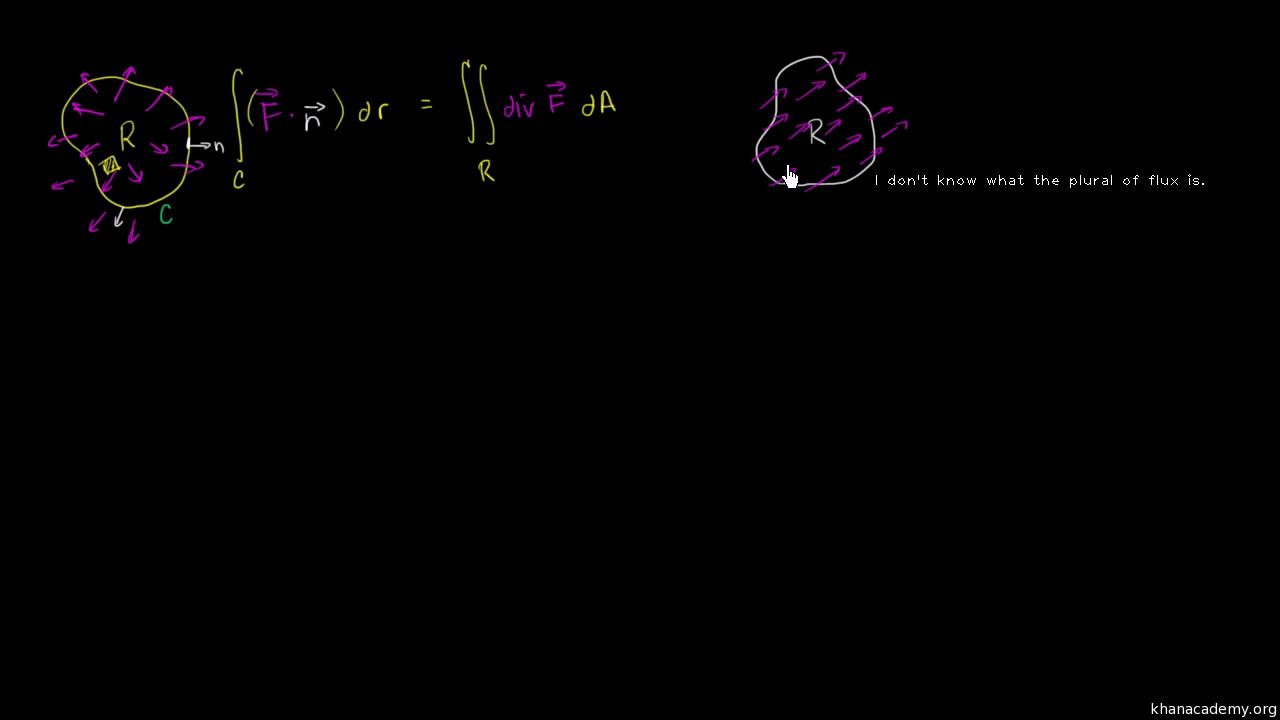 R
n
C
∫_C (F⃗ · n⃗) dr = ∬_R div F⃗ dA
R
I don't know what the plural of flux is.
khanacademy.org